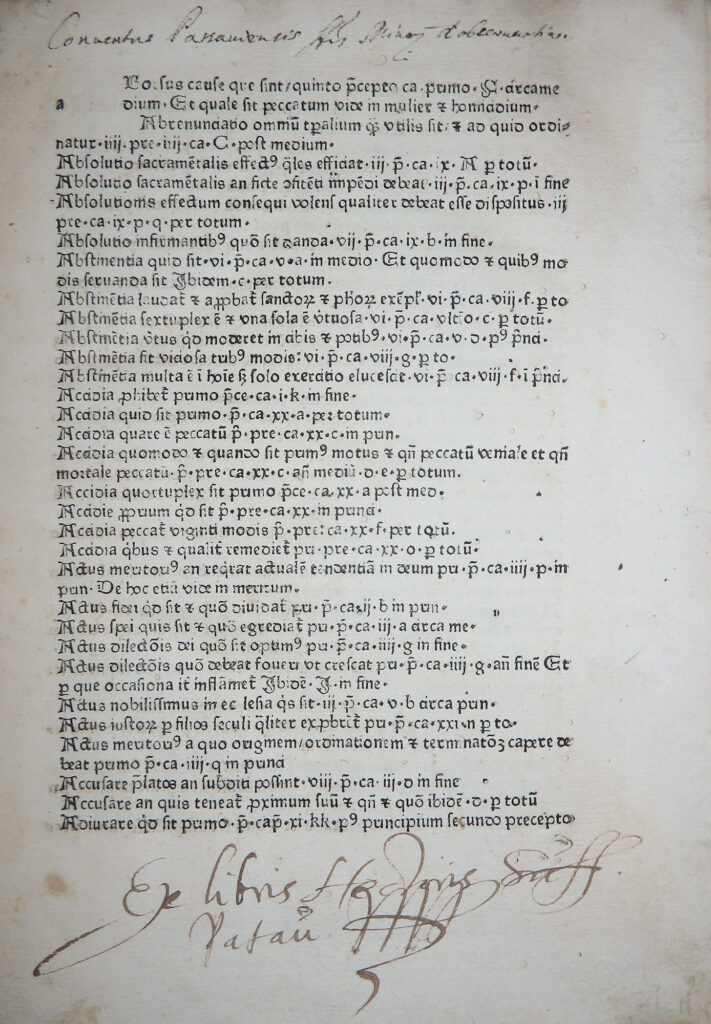 Conventus Passaviensis
Borsus cause que sint/quinto p̄cepto ca. pumo. C. circa me
a dium. Et quale sit peccatum vide in mulier ⁊ homicidium.
Abrenunciatio omniū tp̄alium vtilis sit, ⁊ ad quid ordi⸗
natur. iiij. pre. iiij. ca. C. post medium.
Absolutio sacramētalis effectꝰ q̄les efficiat. iij. p̄. ca. ix. A p̄ totū.
Absolutio sacramētalis an ficte ꝯfitēti impēdi debeat. iij. p̄. ca. ix. p. ī fine
Absolutionis effectum consequi volens qualiter debeat esse dispositus. iij
pre. ca. ix. p. q. per totum.
Absolutio infirmantibꝰ quō sit danda. vij. p̄. ca. ix. b. in fine.
Abstinentia quid sit. vi. p̄. ca. v. a. in medio. Et quomodo ⁊ quibꝰ mo
dis seruanda sit Ibidem. c. per totum.
Abstinētia laudat̄ ⁊ aꝓbat̄ sanctoꝝ ⁊ ph̄oꝝ exēpl̄. vi. p̄. ca. viij. f. p̄ to
Abstinētia sextuplex ē ⁊ vna sola ē v̄tuosa. vi. p̄. ca. vltīo. c. p̄ totū.
Abstinētia v̄tus qd̄ moderet in cibis ⁊ potibꝰ. vi. p̄. ca. v. d. pꝰ p̄nci.
Abstinētia fit viciosa tribꝰ modis: vi. p̄. ca. viij. g. p̄ to.
Abstinētia multa ē ī hoīe sꝫ solo exercitio elucescat. vi. p̄. ca. viij. f. ī p̄nci.
Acidia ꝓhibet̄ pumo p̄ce. ca. i. k. in fine.
Acidia quid sit pumo. p̄. ca. xx. a. per totum.
Acidia quare ē peccatū p̄. pre. ca. xx. c. in pun.
Acidia quomodo ⁊ quando sit pumꝰ motus ⁊ qn̄ peccatū veniale et qn̄
mortale peccatū. p̄. pre. ca. xx. c. an̄ mediū. d. e. p̄ totum.
Accidia quortuplex sit pumo p̄ce. ca. xx. a post med.
Acidie ꝓpuum qd̄ sit p̄. pre. ca. xx. in punci.
Acidia peccat̄ viginti modis p̄. pre: ca. xx. f. per totū.
Acidia qb̄us ⁊ qualit̄ remediet̄ pu. pre. ca. xx. o. p̄ totū.
Actus meritouꝰ an req̄rat actualē tendentiā in deum pu. p̄. ca. iiij. p. in
pun. De hoc etiā vide in meritum.
Actus fidei qd̄ sit ⁊ quō diuidat̄ pu. p̄. ca. ij. b in pun.
Actus spei quis sit ⁊ quō egrediat̄ pu. p̄. ca. iij. a circa me.
Actus dilectōis dei quō sit optimꝰ pu. p̄. ca. iiij. g in fine.
Actus dilectōis quō debeat foueri vt crescat pu. p̄. ca. iiij. g. an̄ finē Et
p̄ que occasiona it̄ inflāmet̄ Ibidē. J. in fine.
Actus nobilissimus in ec lesia q̄s sit. iij. p̄. ca. v. b circa pun.
Actus iustoꝝ p̄ filios seculi q̄liter expbrit̄ pu. p̄. ca. xxi. n p̄ to.
Actus meritouꝰ a quo originem/ordinationem ⁊ terminatōꝫ capere de
beat pumo p̄. ca. iiij. q in punci
Accusare p̄latos an subditi possint. viij. p̄. ca. iij. d in fine
Accusare an quis teneat̄ ꝓximum suū ⁊ qn̄ ⁊ quō ibidē. d. p̄ totū
Adiurare qd̄ sit pumo. p̄. cap̄. xi. kk. pꝰ puncipium secundo precepto
Ex libris
Patau